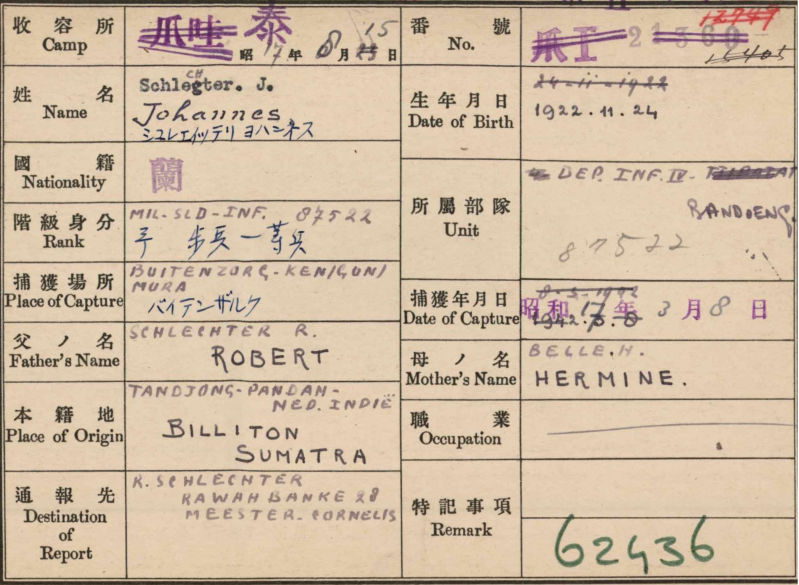 收容所
Camp
爪哇 泰
昭17年8月15日
番號
No.
爪I 21360
12949
15405
姓名
Name
Schlechter. J.
Johannes
シユレエイッテリ ヨハンネス
生年月日
Date of Birth
24-11-1922
1922.11.24
國籍
Nationality
蘭
所屬部隊
Unit
DEP. INF. IV-
BANDOENG.
87522
階級身分
Rank
MIL-SLD-INF. 87522
歩兵一等兵
捕獲場所
Place of Capture
BUITENZORG-KEN/GUN/
MURA
バイテンザルク
捕獲年月日
Date of Capture
8-3-1942
昭和17年3月8日
父ノ名
Father's Name
SCHLECHTER R.
ROBERT
母ノ名
Mother's Name
BELLE.H.
HERMINE.
本籍地
Place of Origin
TANDJONG-PANDAN-
NED. INDIE
BILLITON
SUMATRA
職業
Occupation
通報先
Destination
of
Report
R. SCHLECHTER
RAWAH BANKE 28
MEESTER-CORNELIS
特記事項
Remark
62436